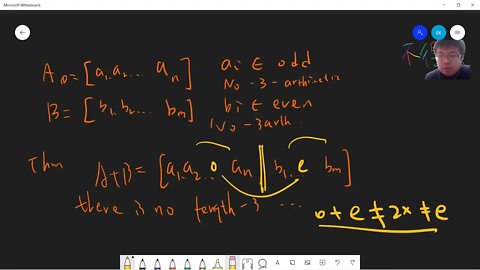 Microsoft Whiteboard
EK
A₀ = [a₁, a₂... aₙ] aᵢ ∈ odd
No -3- arthimetic
B = [b₁, b₂... bₘ] bᵢ ∈ even
No -3 arth...
Thm A+B = [a₁, a₂.. o aₙ || b₁.. e bₘ]
there is no length-3 ...
o + e ≠ 2x ≠ e